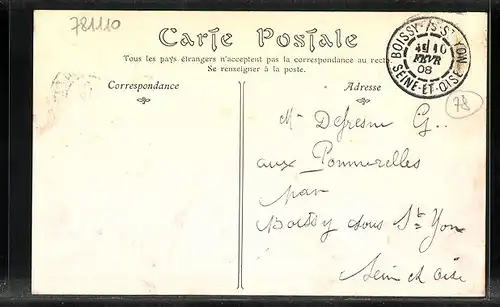 781110
Carte Postale
Tous les pays étrangers n'acceptent pas la correspondance au recto.
Se renseigner à la poste.
Correspondance
Adresse
BOISSY-S-ST YON
10
FEVR
08
SEINE-ET-OISE
78
Mr Defresne G.
aux Pommerelles
par
Boissy sous St Yon
Seine et Oise